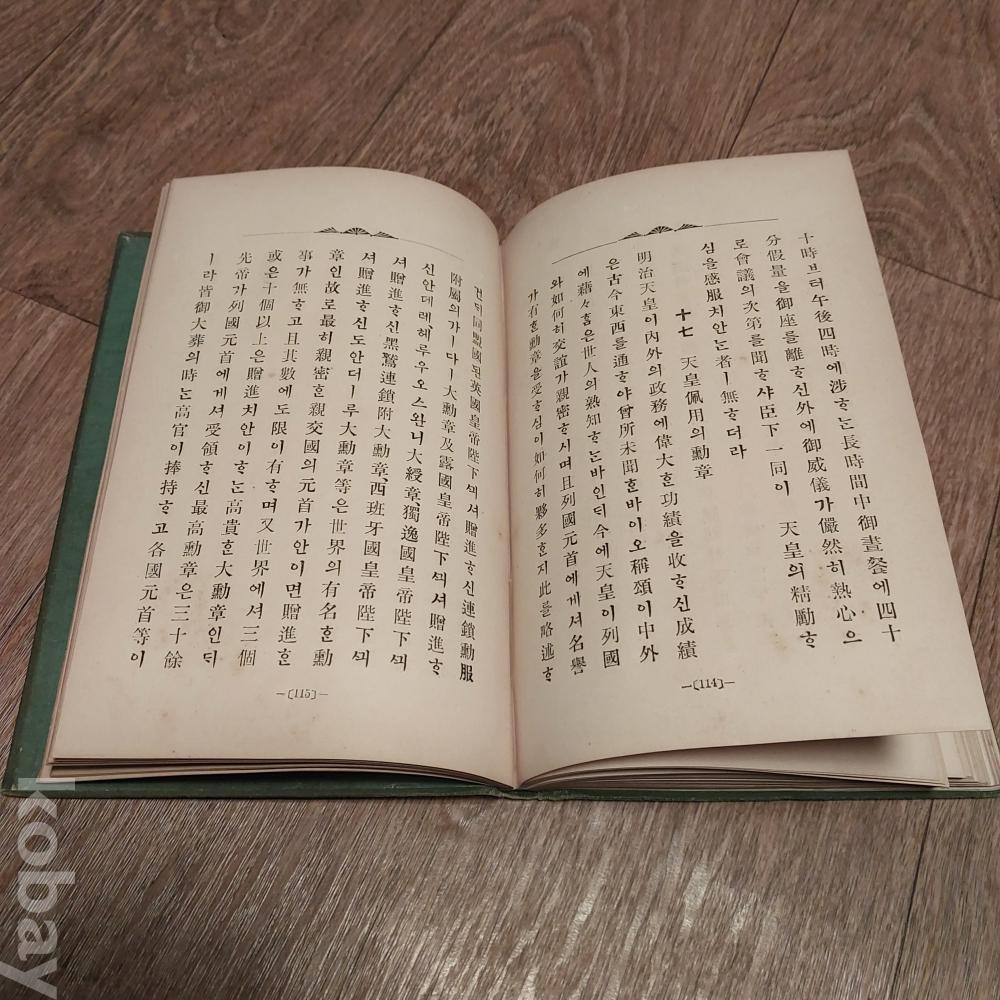 十時브터午後四時에涉ᄒᆞᄂᆞᆫ長時間中御晝餐에四十
分假量을御座를離ᄒᆞ신外에御威儀가儼然히熱心으
로會議의次第를聞ᄒᆞ샤臣下一同이 天皇의精勵ᄒᆞ
심을感服치안ᄂᆞᆫ者ㅣ無ᄒᆞ더라
十七 天皇佩用의勳章
明治天皇이內外의政務에偉大ᄒᆞᆫ功績을收ᄒᆞ신成績
은古今東西를通ᄒᆞ야曾所未聞ᄒᆞᆫ바이오稱頌이中外
에藉々ᄒᆞᆷ은世人의熟知ᄒᆞᄂᆞᆫ바인ᄃᆡ今에天皇이列國
와如何히交誼가親密ᄒᆞ시며且列國元首에게셔名譽
가有ᄒᆞᆫ勳章을受ᄒᆞ심이如何히夥多ᄒᆞᆫ지此를略述ᄒᆞ
—〔114〕—
건ᄃᆡ同盟國된英國皇帝陛下ᄭᅴ셔贈進ᄒᆞ신連鎖勳服
附屬의가ㅣ다ㅣ大勳章及露國皇帝陛下ᄭᅴ셔贈進ᄒᆞ
신안데레헤루우오스완니大綬章、獨逸國皇帝陛下ᄭᅴ
셔贈進ᄒᆞ신黑鷲連鎖附大勳章、西班牙國皇帝陛下ᄭᅴ
셔贈進ᄒᆞ신도안더ㅣ루大勳章等은世界의有名ᄒᆞᆫ勳
章인故로最히親密ᄒᆞᆫ親交國의元首가안이면贈進ᄒᆞᆫ
事가無ᄒᆞ고且其數에도限이有ᄒᆞ며又世界에셔三個
或은十個以上은贈進치안이ᄒᆞᄂᆞᆫ高貴ᄒᆞᆫ大勳章인ᄃᆡ
先帝가列國元首에게셔受領ᄒᆞ신最高勳章은三十餘
ㅣ라皆御大葬의時ᄂᆞᆫ高官이捧持ᄒᆞ고各國元首等이
—〔115〕—
kobay